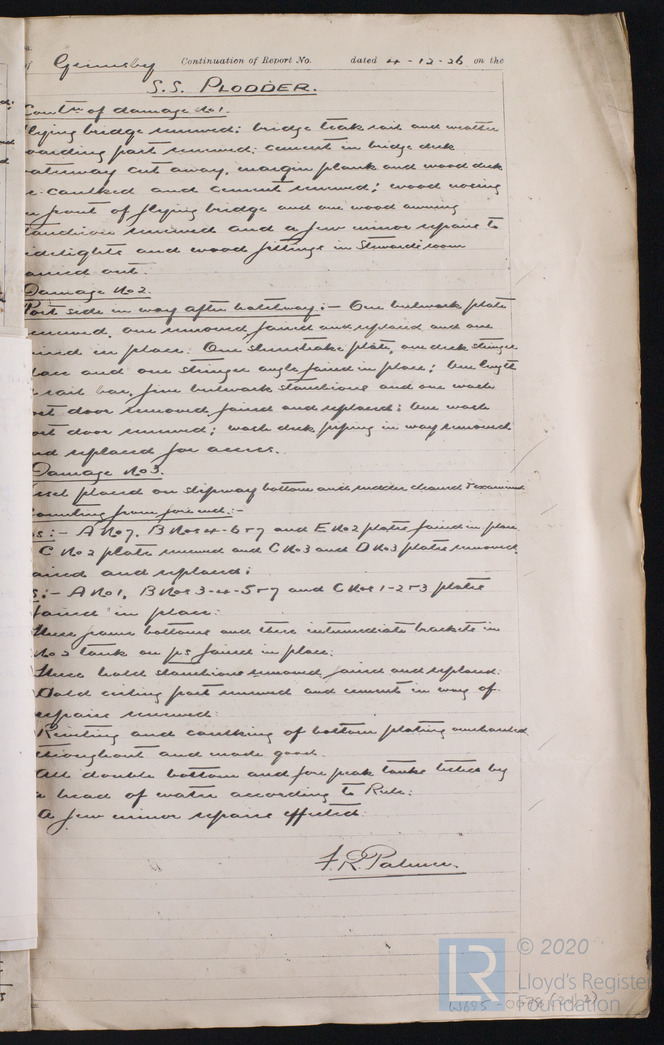 Grimsby Continuation of Report No. dated 4-12-26 on the
S.S. PLODDER.
Contn of damage No 1.
flying bridge renewed; bridge teak rail and weather
boarding part renewed; cement in bridge deck
waterway cut away, margin plank and wood deck
re caulked and cement renewed; wood nosing
on front of flying bridge and one wood awning
stanchion renewed and a few minor repairs to
sidelights and wood fittings in Stewards room
carried out.
Damage No 2.
Port side in way after hatchway:- One bulwark plate
renewed, one removed faired and replaced and one
faired in place. One sheerstrake plate, one deck stringer
plate and one stringer angle faired in place; one length
rail bar, five bulwark stanchions and one wash
port door removed, faired and replaced; one wash
port door renewed; wash deck piping in way removed
and replaced for access.
Damage No 3.
Vessel placed on slipway bottom and rudder cleaned & examined
Counting from fore end:-
ps:- A No 7, B Nos 4-6 & 7 and E No 2 plates faired in place
C No 2 plate renewed and C No 3 and D No 3 plates removed
faired and replaced;
s:- A No 1, B Nos 3-4-5 & 7 and C Nos 1-2 & 3 plates
faired in place:
Three frame bottoms and three intermediate brackets in
No 2 tank on ps faired in place:
Three hold stanchions removed faired and replaced:
Hold ceiling part renewed and cement in way of
repairs renewed:
Riveting and caulking of bottom plating overhauled
throughout and made good.
All double bottom and fore peak tanks tested by
a head of water according to Rule:
A few minor repairs effected.
F.R. Palmer.
LR
© 2020
Lloyd's Register
Foundation
W695-0078 (2/2)